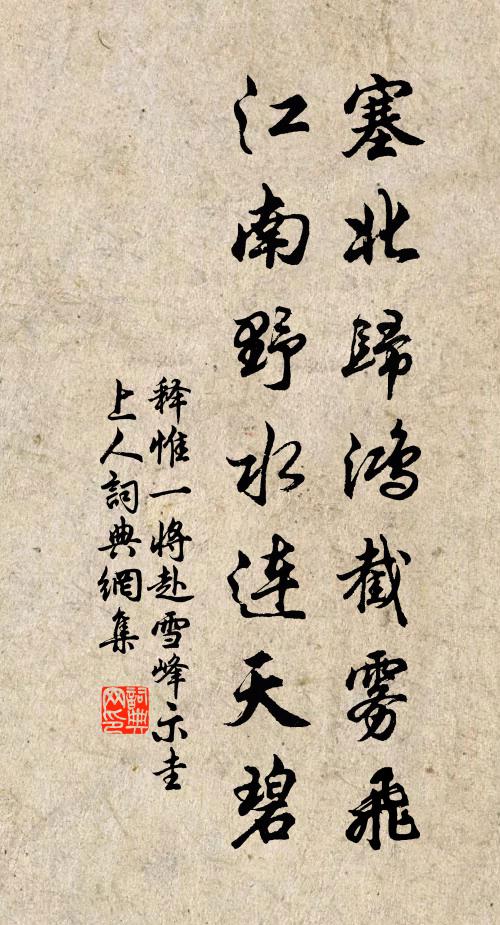 塞北歸鴻截雾飛
江南野水連天碧
释惟一将赴雪峰示圭
上人詞典網集
詞典
网印